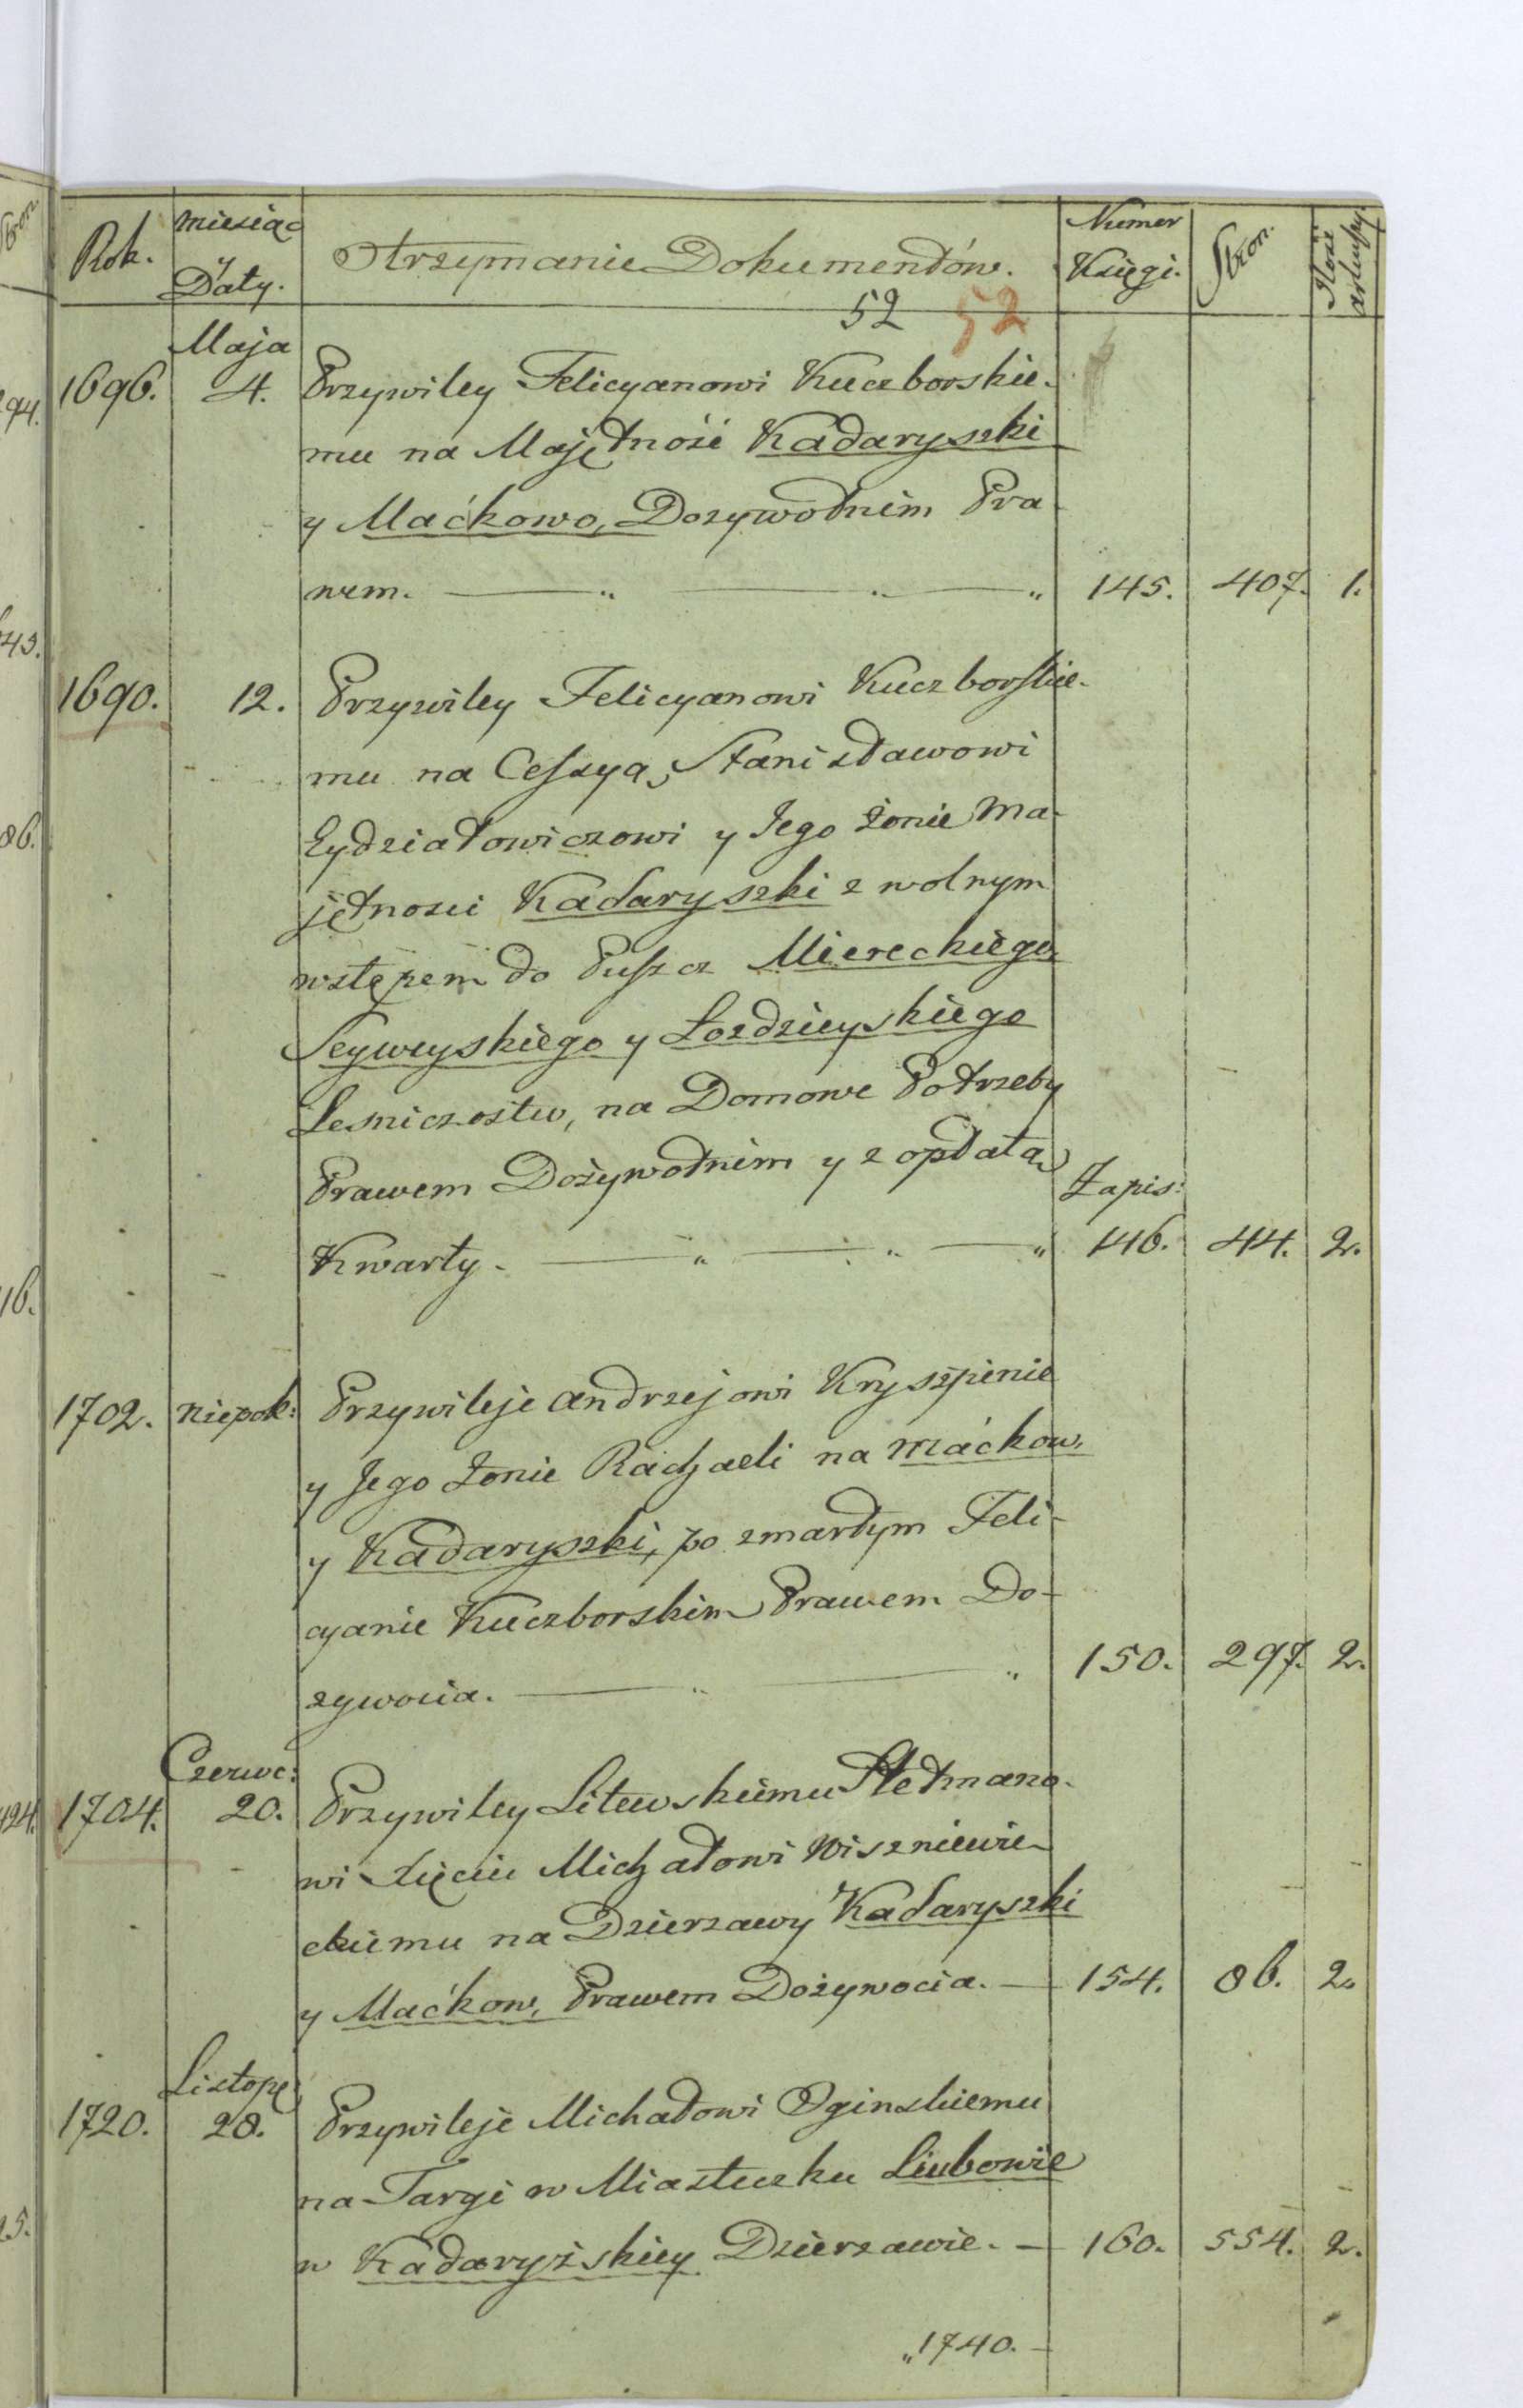 Rok. miesiąc y Daty. Otrzymanie Dokumentów. Numer Księgi. Stron. Ilość arkuszy.
52 52
Maja
1696. 4. Przywiley Felicyanowi Kuczborskie-
mu na Majętność Kadaryszki
y Maćkowo, Dozywotnim Pra-
wem. 145. 407. 1.
1690. 12. Przywiley Felicyanowi Kuczborskie-
mu na Cessyą, Stanisławowi
Eydziatowiczowi y Jego żonie Ma-
jętnosci Kadaryszki z wolnym
wstępem do Puszcz Miereckiego
Seyweyskiego y Łozdzieyskiego
Lesnictostw, na Domowe Potrzeby
Prawem Dożywotnim y z opłatą
Zapis:
Kwarty. 146. 44. 2.
1702. niepok: Przywileje andrzejowi Kryszpinie
y Jego żonie Rachaeli na maćkow.
y Kadaryszki, po zmarłym Feli-
cyanie Kuczborskim Prawem Do-
zywocia. 150. 297. 2.
Czerwc:
1704. 20. Przywiley Litewskiemu Hetmano-
wi Xięciu Michałowi Wiszniewie-
ckiemu na Dzierzawy Kadaryszki
y Maćkow, Prawem Dożywocia. 154. 86. 2.
Listop:
1720. 28. Przywileje Michałowi Oginskiemu
na Targi w Miasteczku Liubowie
w Kadaryżskiey Dzierzawie. 160. 554. 2.
„1740.